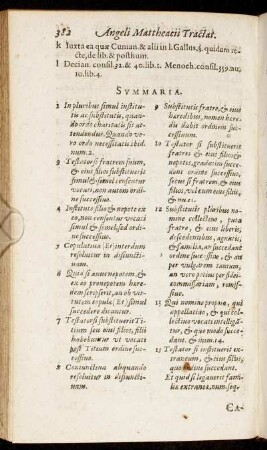 382 Angeli Mattheatii Tractat.
k Iuxta ea quæ Cuman. & alii in l. Gallus. §. quidam re-
cte, de lib. & posthum.
l Decian. consil. 32. & 40. lib. 1. Menoch. consil. 339. nu.
10. lib. 4.
SVMMARIA.
1 In pluribus simul institu-
tis ac substitutis, quan-
do ordo charitatis sit at-
tendendus. Quando ve-
ro ordo necessitatis ibid.
num. 2.
3 Testator si fratrem suum,
& eius filios substituerit
simul & semel censentur
vocati, non autem ordi-
ne successiuo.
4 Institutus filio & nepote ex
eo, non censentur vocati
simul & semel sed ordi-
ne successiuo.
5 Copulatiua (Et) interdum
resoluitur in disiuncti-
uam.
6 Quia si auus nepotem, &
ex eo pronepotem hære-
dem scripserit, an ob ver-
tutem copulæ (Et) simul
succedere dicantur.
7 Testator si substituerit Ti-
tium seu eius filios, filii
habebuntur vt vocati
post Titium ordine suc-
cessiuo.
8 Coniunctiua aliquando
resoluitur in disiuncti-
uam.
9 Substitutis fratre, & eius
hæredibus, nomen hære-
dis dabit ordinem suc-
cessiuum.
10 Testator si substituerit
fratres & eius filios &
nepotes, gradatim succe-
dent
11 Testator si substituerit
fratrem, & eius
filios, vel eum
nec, &
12 Substitutis pluribus
nomine collectiuo, iuxta
fratre, & eius liberis,
descendentibus, agnatis,
& familia, an succedant
ordine successiuo, & an
per vulgarem tantum,
an vero primi per fidei-
commissariam,
missi.
13 Qui nomine proprio, qui
appellatiuo, & qui col-
lectiuo vocati intelligan-
tur, & quando succe-
dant, & num. 14.
15 Testator si instituerit ex-
traneum, & eius filios,
quo succedant.
Et quid si legauerit fami-
lia extraneo, num. seq.
Ca-